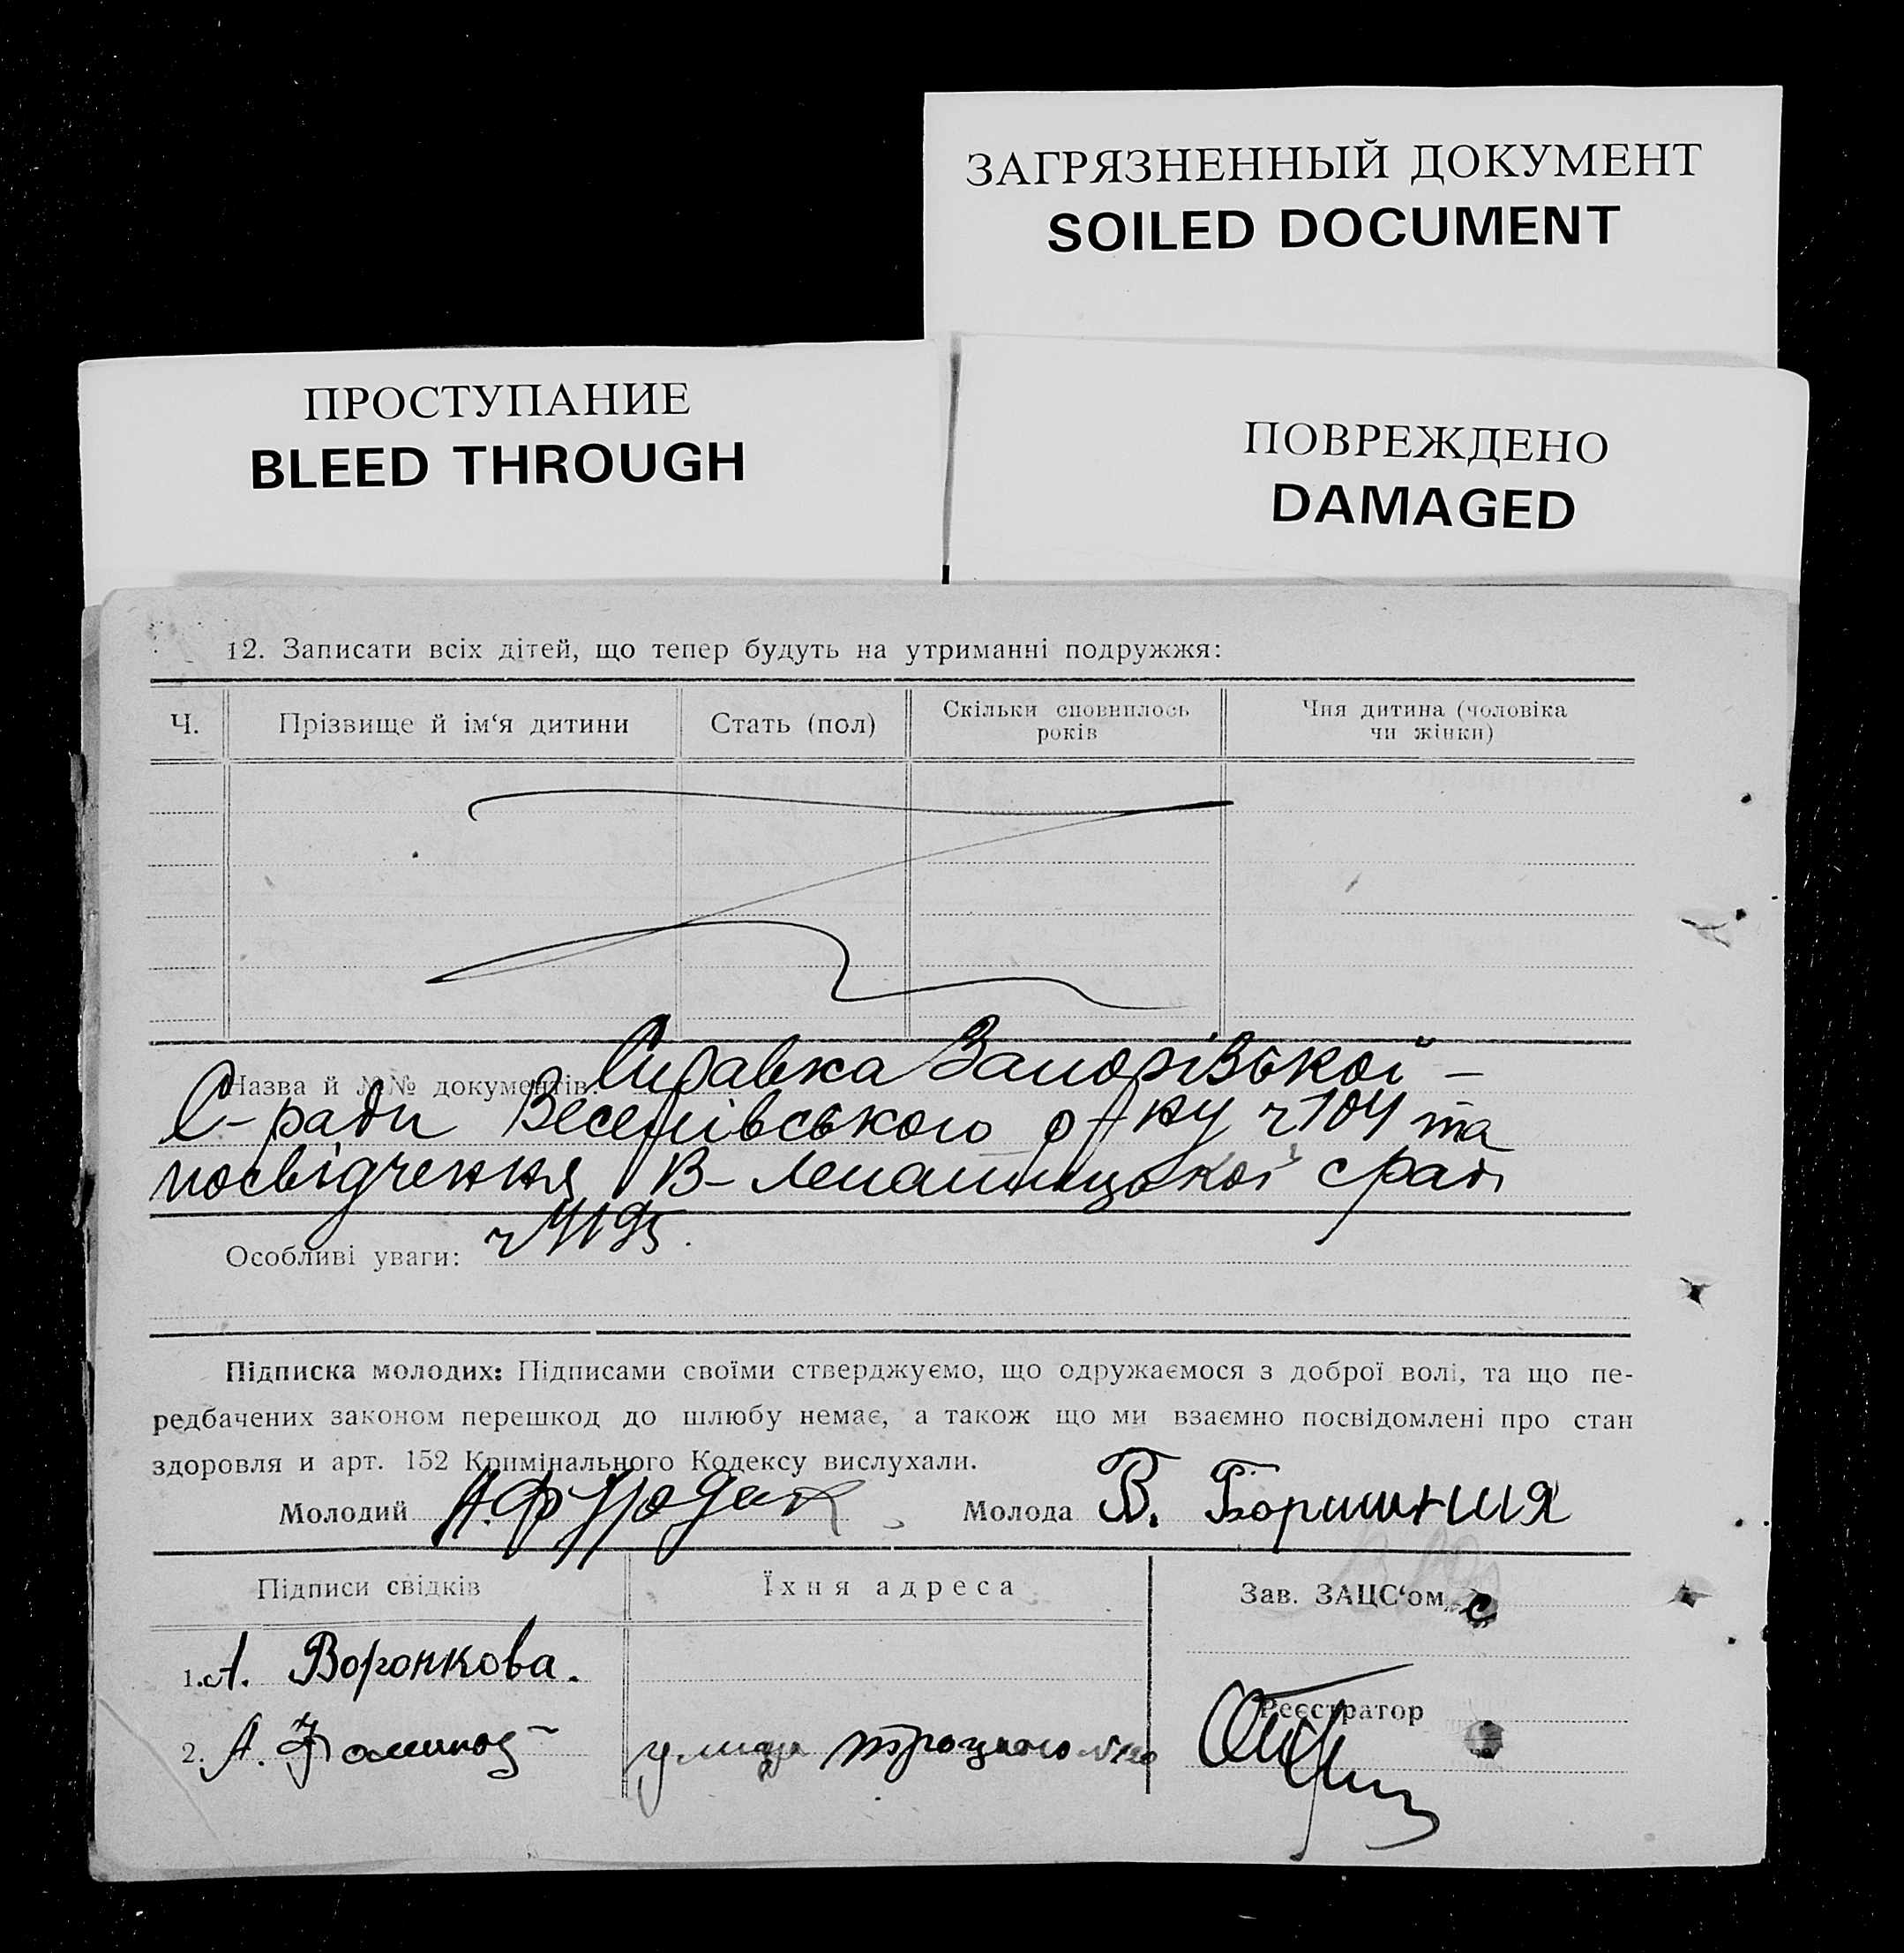 ЗАГРЯЗНЕННЫЙ ДОКУМЕНТ
SOILED DOCUMENT
ПРОСТУПАНИЕ
BLEED THROUGH
ПОВРЕЖДЕНО
DAMAGED
12. Записати всіх дітей, що тепер будуть на утриманні подружжя:
Ч.
Прізвище й ім‘я дитини
Стать (пол)
Скільки сповнилось
років
Чия дитина (чоловіка
чи жінки)
Назва й №№ документів: Справка Запорівської –
С-ради Веселівського р-ну ч 104 та
посвідчення В-Лепатицької сради
Особливі уваги:
Підписка молодих: Підписами своїми стверджуємо, що одружаємося з доброї волі, та що пе-
редбачених законом перешкод до шлюбу немає, а також що ми взаємно посвідомлені про стан
здоровля и арт. 152 Кримінального Кодексу вислухали.
Молодий
Молода В.
Підписи свідків
Їхня адреса
Зав. ЗАЦС‘ом
1. А. Воронкова.
Реєстратор
2. А. улица Троцкого